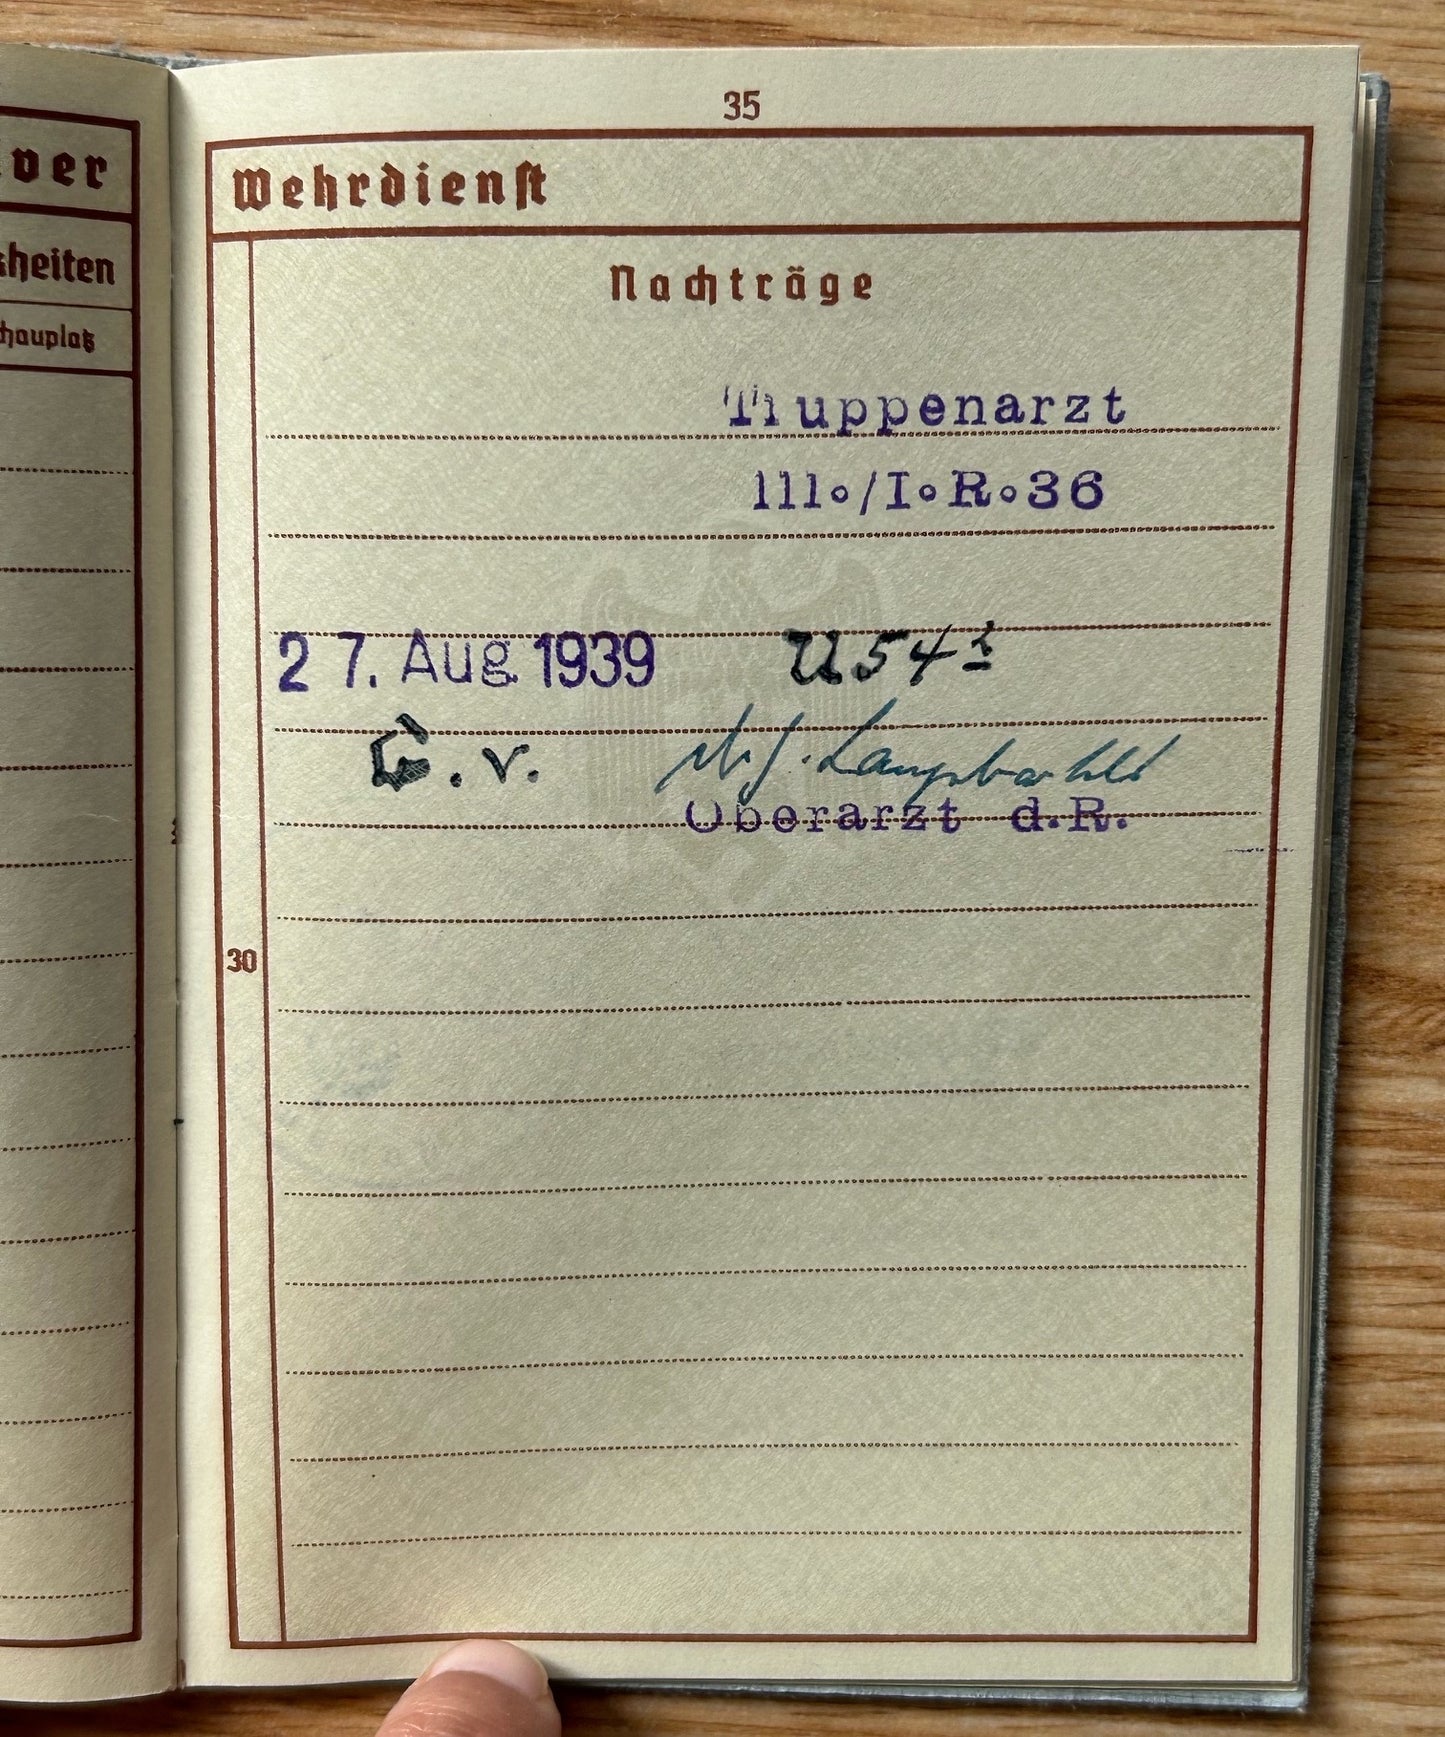 ver
heiten
hauplatz
35
Wehrdienst
Nachträge
Truppenarzt
111./I.R.36
27. Aug. 1939 U 54 1
v.
Oberarzt d.R.
30